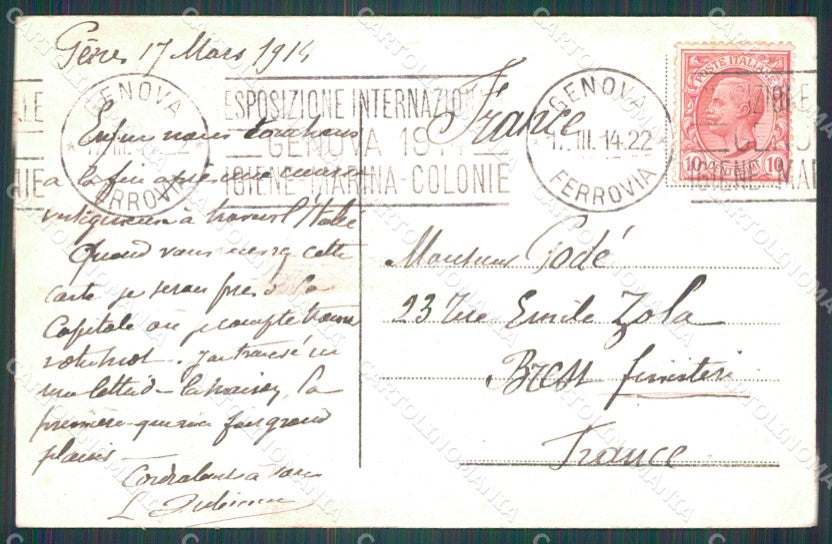 Gênes 17 Mars 1914
Enfin nous
à la fin après une course
vertigineuse à travers l'Italie
Quand vous cette
carte je serai près de la
Capitale où je compte trouver
votre mot. J'ai trouvé ici
une lettre de la maison, la
première qui m'a fait grand
plaisir
Cordialement à vous
L.
GENOVA
FERROVIA
ESPOSIZIONE INTERNAZIONALE
GENOVA 1914
IGIENE-MARINA-COLONIE
France
GENOVA
17.III.14.22
FERROVIA
POSTE ITALIANE
10 10
Monsieur Godé
23 Rue Emile Zola
Brest finistère
France
CARTOLINOMANIA